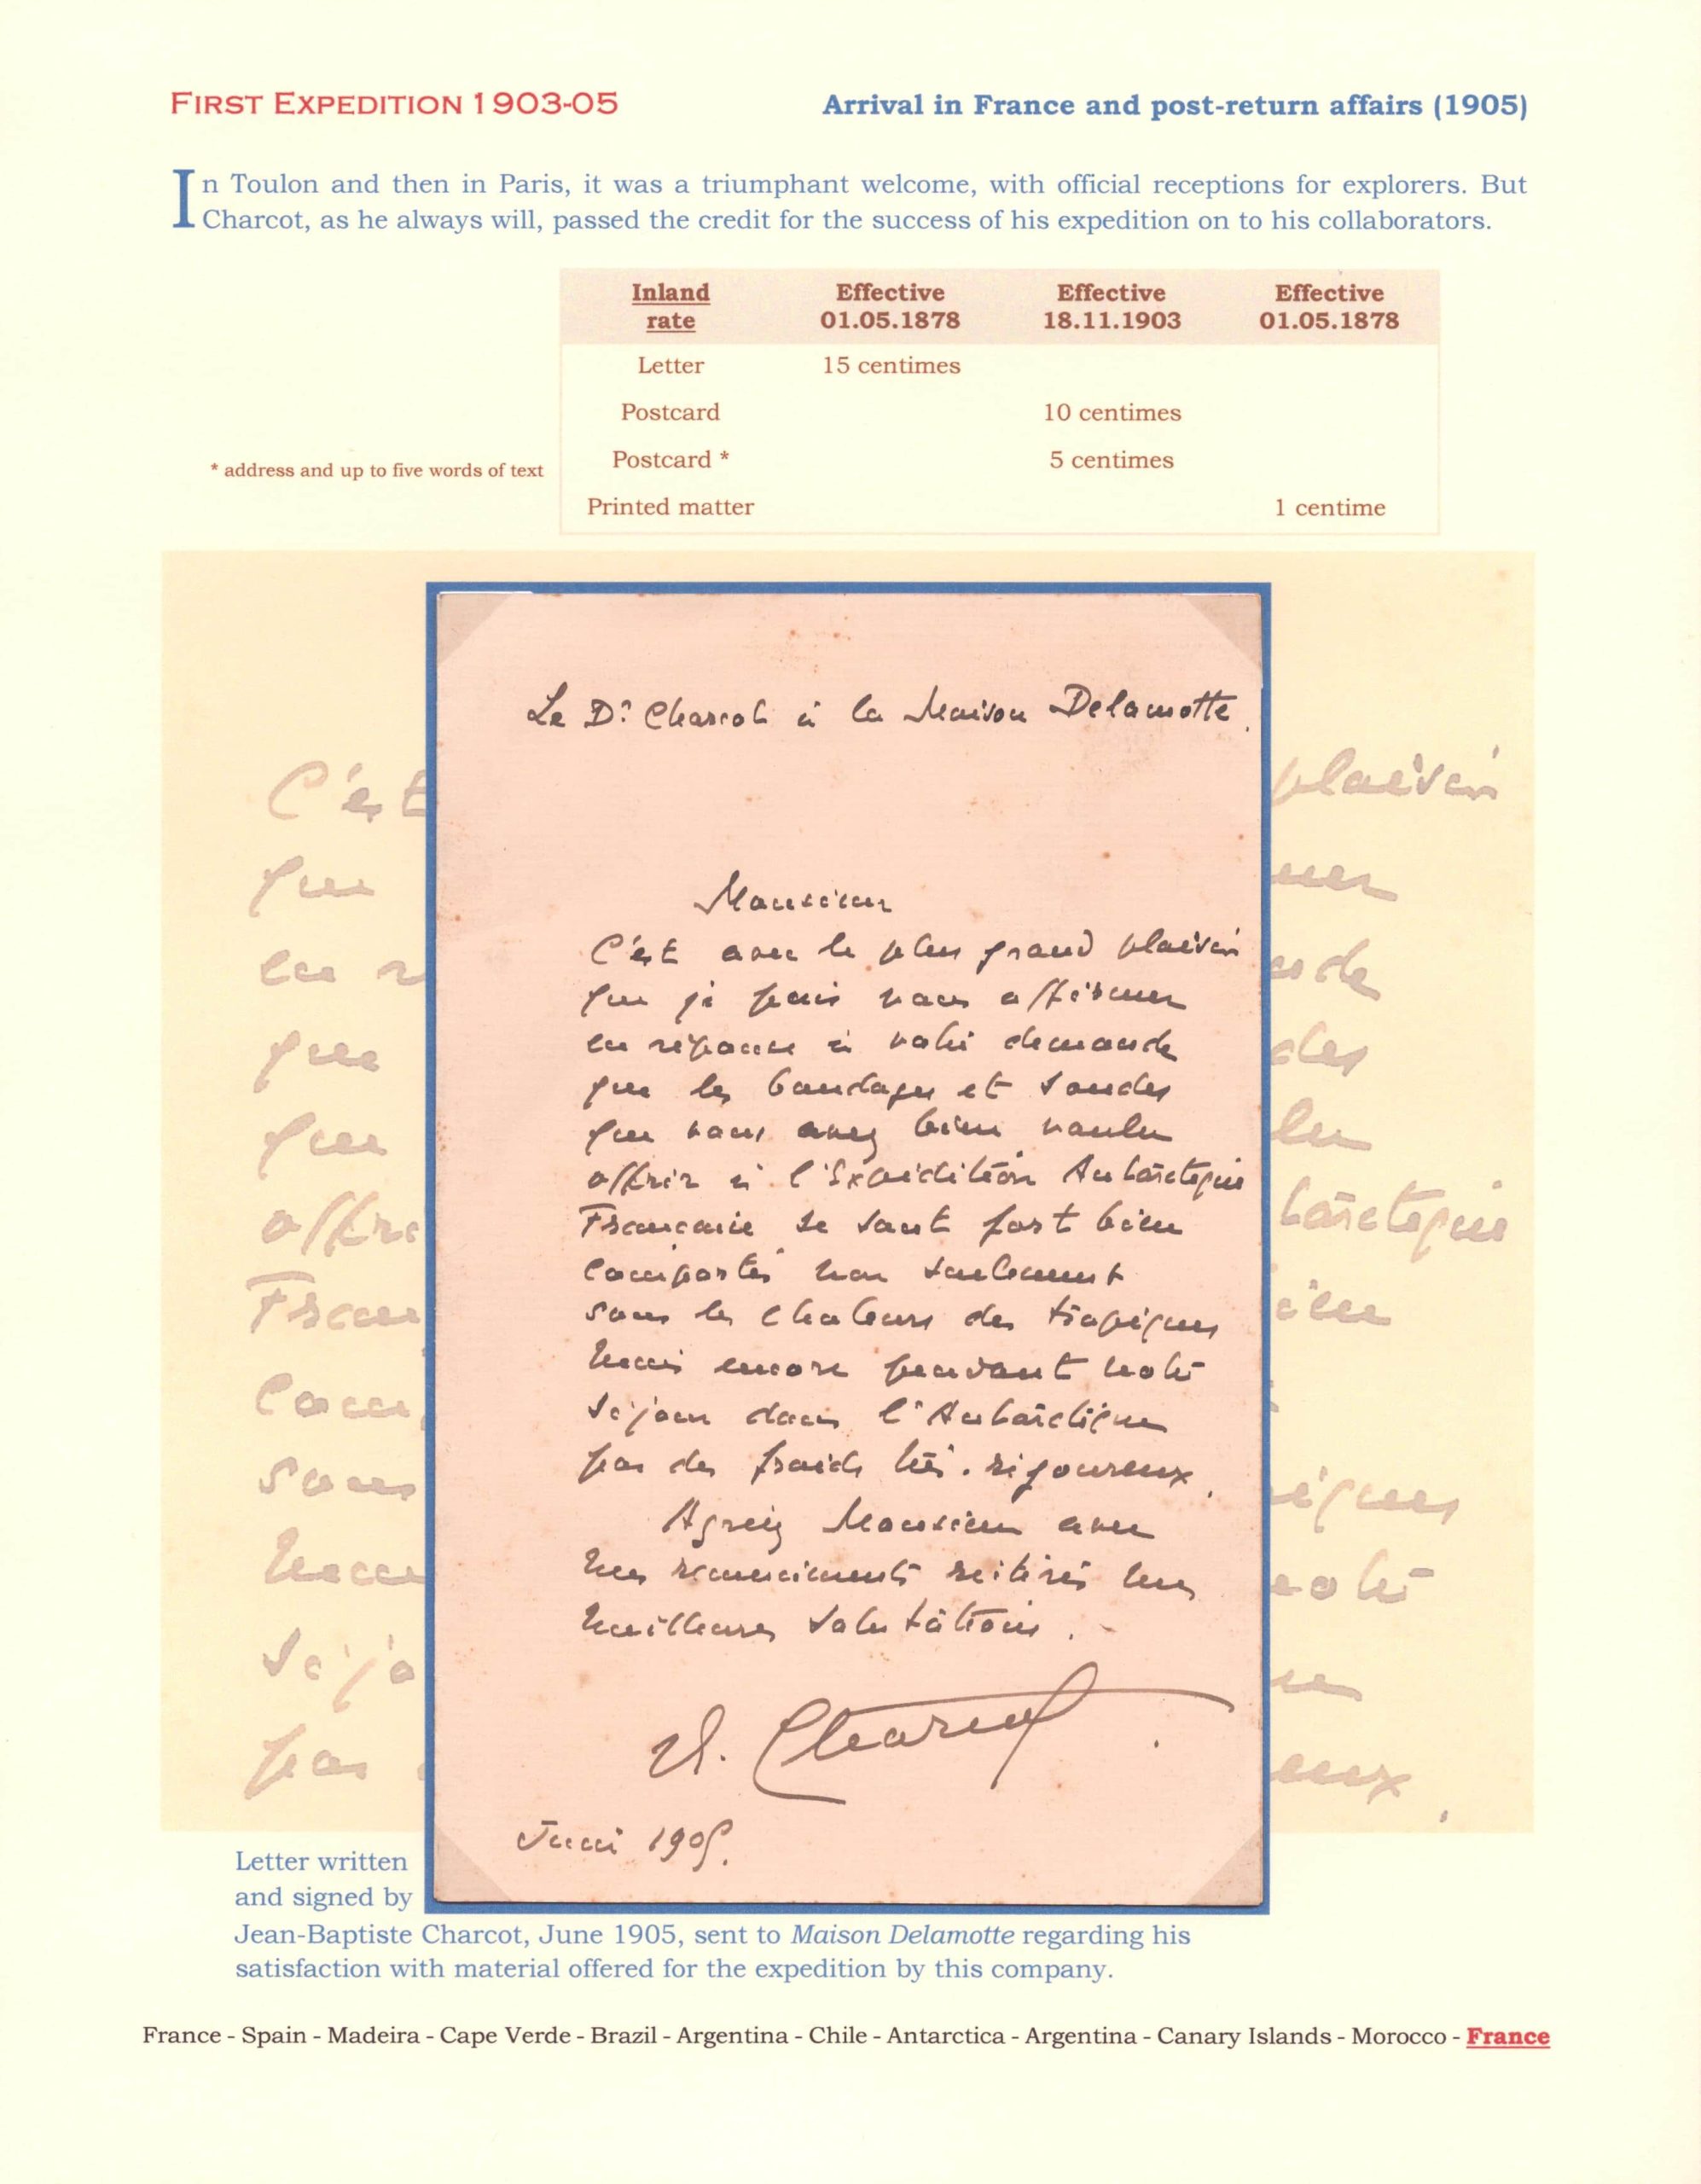 FIRST EXPEDITION 1903-05
Arrival in France and post-return affairs (1905)
In Toulon and then in Paris, it was a triumphant welcome, with official receptions for explorers. But
Charcot, as he always will, passed the credit for the success of his expedition on to his collaborators.
Inland rate Effective 01.05.1878 Effective 18.11.1903 Effective 01.05.1878
Letter 15 centimes
Postcard 10 centimes
Postcard * 5 centimes
Printed matter 1 centime
* address and up to five words of text
Le Dr Charcot à la Maison Delamotte.
Monsieur
C'est avec le plus grand plaisir
que je puis vous affirmer
en réponse à votre demande
que les bandages et sondes
que vous avez bien voulu
offrir à l'Expédition Antarctique
Française se sont fort bien
comportés non seulement
sous les chaleurs des tropiques
mais encore pendant notre
séjour dans l'Antarctique
par des froids très rigoureux.
Agréez Monsieur avec
mes remerciements réitérés mes
meilleures salutations.
J. Charcot
Juin 1905.
Letter written
and signed by
Jean-Baptiste Charcot, June 1905, sent to Maison Delamotte regarding his
satisfaction with material offered for the expedition by this company.
France - Spain - Madeira - Cape Verde - Brazil - Argentina - Chile - Antarctica - Argentina - Canary Islands - Morocco - France